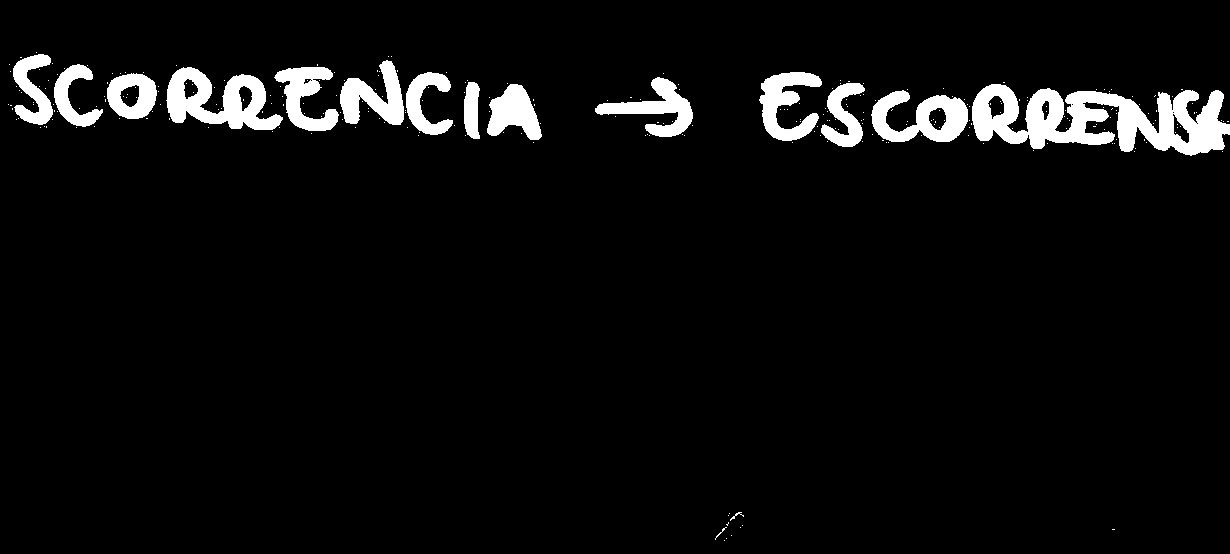 SCORRENCIA → ESCORRENSA